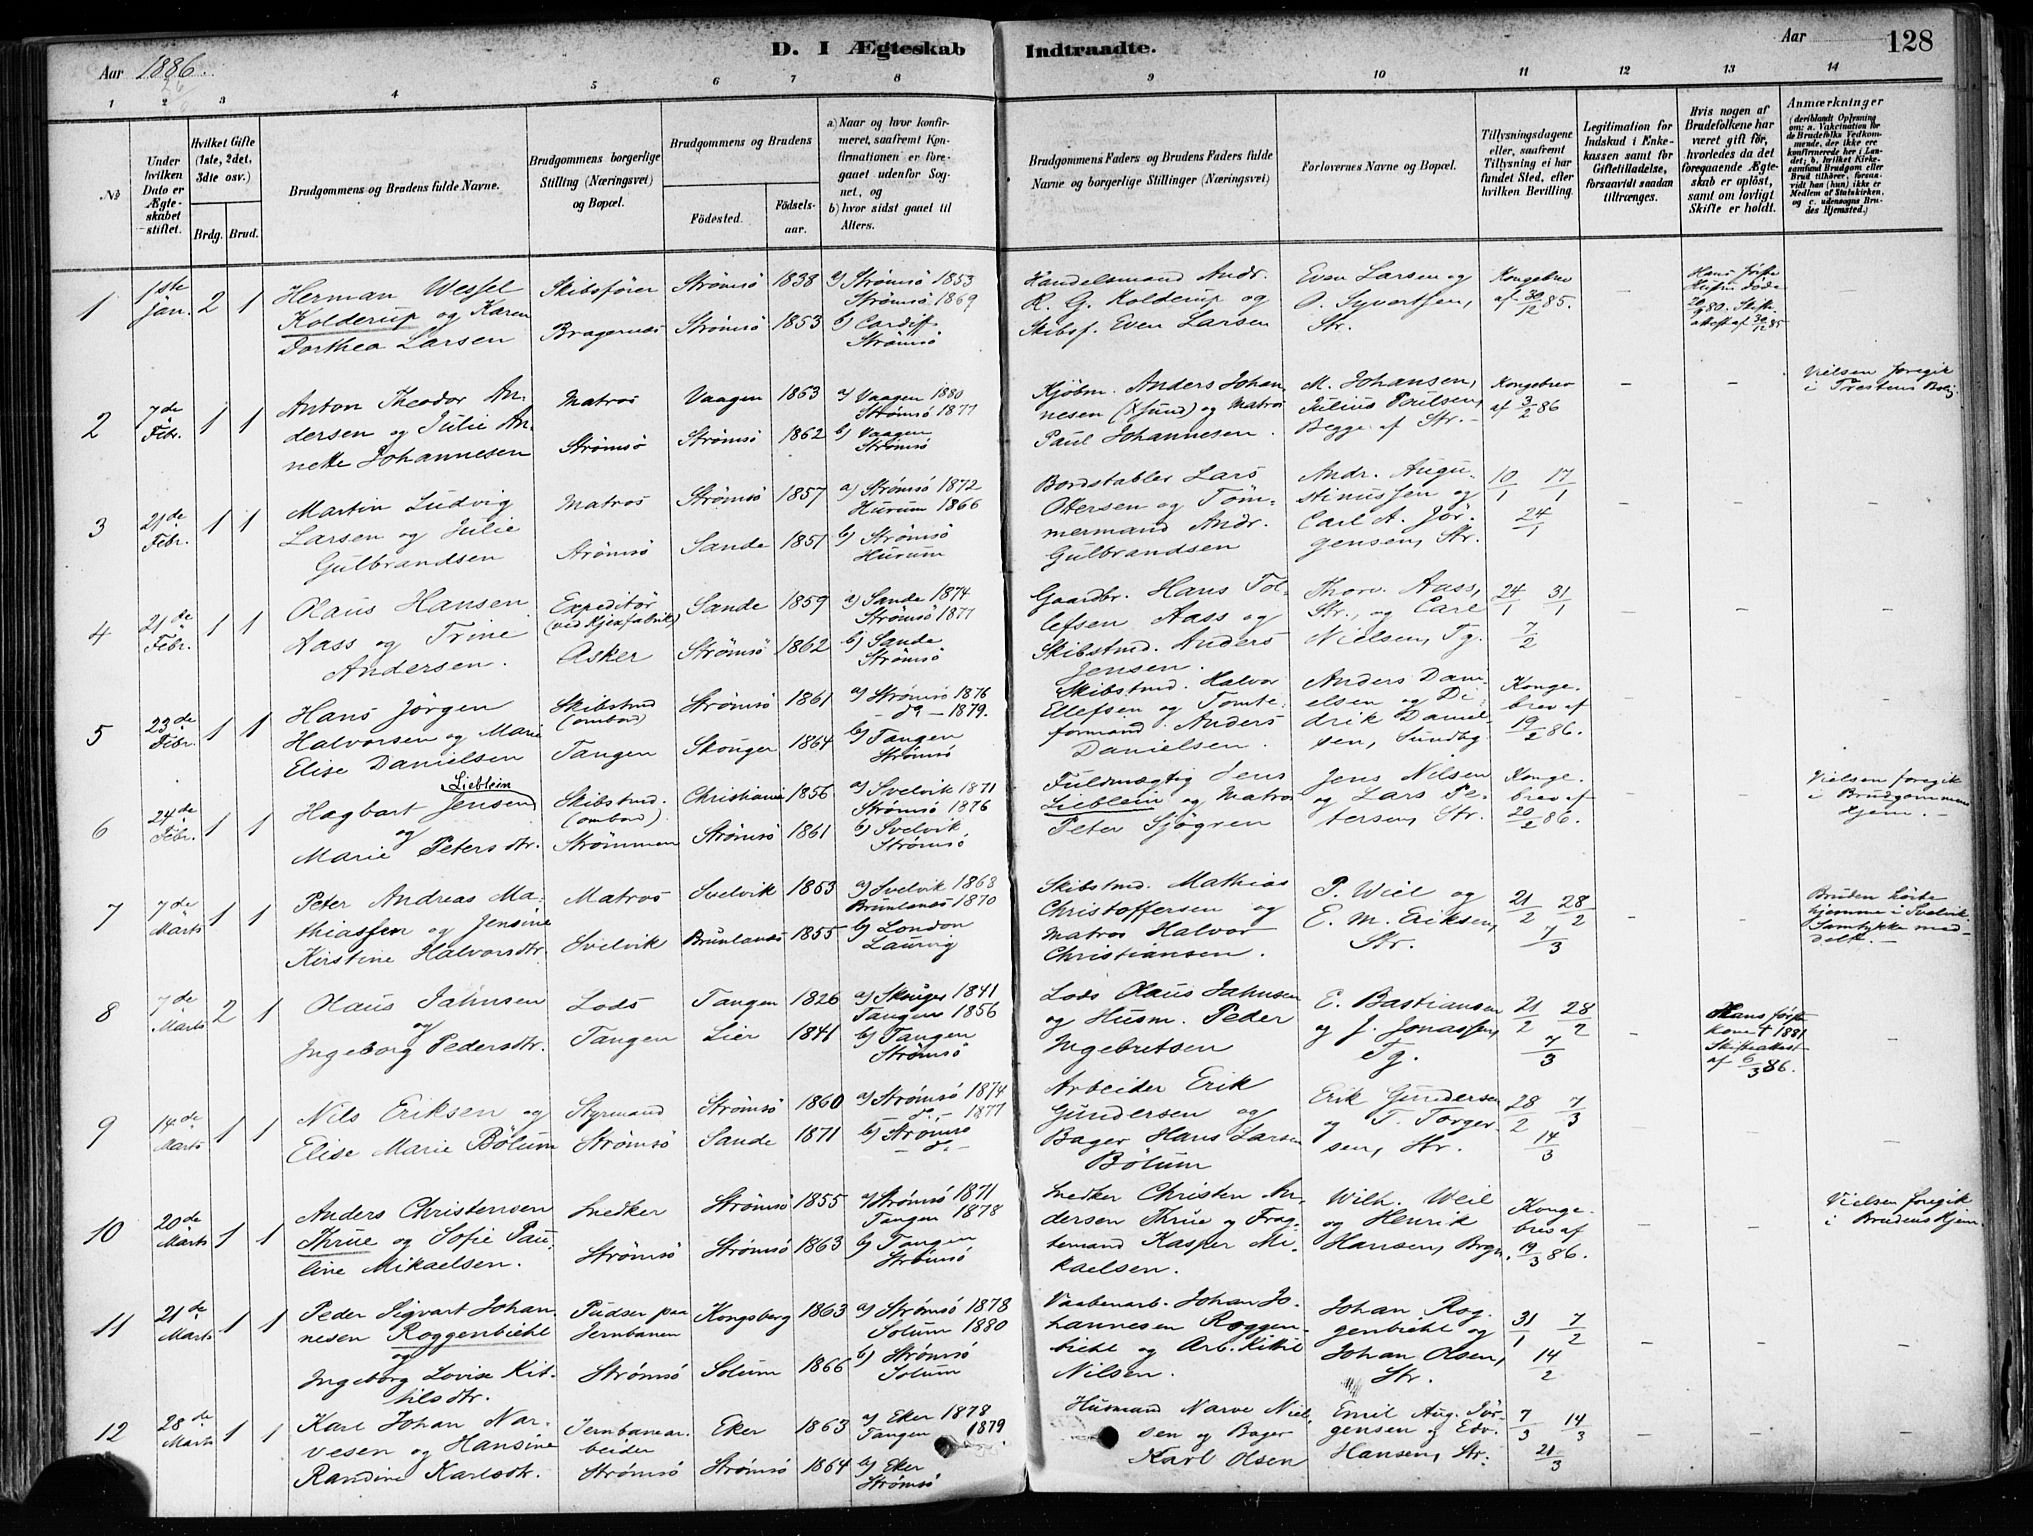 Aar 1886. D. I Ægteskab Indtraadte. Aar 128
1 2 3 4 5 6 7 8 9 10 11 12 13 14
№
Under hvilken Dato er Ægteskabet stiftet.
Hvilket Gifte (1ste, 2det, 3dte osv.)
Brdg. Brud.
Brudgommens og Brudens fulde Navne.
Brudgommens borgerlige Stilling (Næringsvei) og Bopæl.
Brudgommens og Brudens
Födested. Födselsaar.
a) Naar og hvor konfirmeret, saafremt Konfirmationen er foregaaet udenfor Sognet, og
b) hvor sidst gaaet til Alters.
Brudgommens Faders og Brudens Faders fulde Navne og borgerlige Stillinger (Næringsvei)
Forlovernes Navne og Bopæl.
Tillysningsdagene eller, saafremt Tillysning ei har fundet Sted, efter hvilken Bevilling.
Legitimation for Indskud i Enkekassen samt for Giftetilladelse, forsaavidt saadan tiltrænges.
Hvis nogen af Brudefolkene har været gift før, hvorledes da det foregaaende Ægteskab er oplöst, samt om lovligt Skifte er holdt.
Anmærkninger (deriblandt Oplysning om: a. Vakcination for de Brudefolks Vedkommende, der ikke ere konfirmerede her i Landet; b. hvilket Kirkesamfund Brudgom eller Brud tilhörer, forsaavidt han (hun) ikke er Medlem af Statskirken, og c. udensogns Brudes Hjemsted.)
1 1ste Jan. 2 1
Herman Wessel
Kolderup og Karen
Dorthea Larsen
Skibsfører
Bragernæs
Strömsö 1838
Strömsö 1853
a) Strömsö 1853
Strömsö 1869
b) Cardiff
Strömsö
Handelsmand Andr.
R. G. Kolderup og
Skibsf. Even Larsen
Even Larsen og
O. Syvertsen,
Str.
Kongebrev
af 30/12 85.
Hans første
Hustru døde
20/9 80. Skifteattest af 30/12 85
2 7de Febr. 1 1
Anton Theodor An-
dersen og Julie An-
nette Johannesen
Matros
Strömsö
Vaagen 1863
Strömsö 1862
a) Vaagen 1880
Strömsö 1877
b) Vaagen
Strömsö
Kjöbm. Anders Johan-
nesen (Xsund) og Matros
Paul Johannesen.
M. Johansen,
Julius Paulsen,
Begge af Str.
Kongebrev
af 3/2 86
Vielsen foregik
i Præstens Bolig.
3 21de Febr. 1 1
Martin Ludvig
Larsen og Julie
Gulbrandsen
Matros
Strömsö
Strömsö 1857
Sande 1851
a) Strömsö 1872
Hurum 1866
b) Strömsö
Hurum
Bordstabler Lars
Ottersen og Töm-
mermand Andr.
Gulbrandsen
Andr. Augu-
stinussen og
Carl A. Jör-
gensen, Str.
10/1 17/1
24/1
4 21de Febr. 1 1
Olaus Hansen
Aass og Trine
Andersen.
Expeditör
(ved Kjexfabrik)
Asker
Sande 1859
Strömsö 1862
a) Sande 1874
Strömsö 1877
b) Sande
Strömsö
Gaardbr. Hans Tol-
lefsen Aass og
Skibstmd. Anders
Jensen.
Thorv. Aass,
Str., og Carl
Nielsen, Tg.
24/1 31/1
7/2
5 23de Febr. 1 1
Hans Jörgen
Halvorsen og Marie
Elise Danielsen
Skibstmd
(ombord)
Tangen
Strömsö 1861
Skouger 1864
a) Strömsö 1876
do — 1879.
b) Tangen
Strömsö
Skibstmd. Halvor
Ellefsen og Tomte-
formand Anders
Danielsen.
Anders Dani-
elsen og Di-
drik Daniel-
sen, Sundbg
Konge-
brev af
19/2 86.
6 24de Febr. 1 1
Lieblein
Hagbart Jensen
og
Marie Petersdtr.
Skibstmd.
(ombord)
Strömmen
Christiania 1856
Strömsö 1861
a) Svelvik 1871
Strömsö 1876
b) Svelvik
Strömsö
Fuldmægtig Jens
Lieblein og Matros
Peter Sjögren
Jens Nilsen
og Lars Pe-
tersen, Str.
Konge-
brev af
20/2 86.
Vielsen foregik
i Brudgommens
Hjem.
7 7de Marts 1 1
Peter Andreas Ma-
thiassen og Jensine
Kirstine Halvorsdtr.
Matros
Svelvik
Svelvik 1853
Brunlanæs 1855
a) Svelvik 1868
Brunlanæs 1870
b) London
Laurvig
Skibstmd. Mathias
Christoffersen og
Matros Halvor
Christiansen.
P. Wiel og
E. M. Eriksen,
Str.
21/2 28/2
7/3
Bruden hörte
hjemme i Svelvik.
Samtykke med-
delt.
8 7de Marts 2 1
Olaus Jahnsen
og
Ingeborg Pedersdtr.
Lods
Tangen
Tangen 1826
Lier 1841
a) Skouger 1841
Tangen 1856
b) Tangen
Strömsö
Lods Olaus Jahnsen
og Husm. Peder
Ingebretsen
E. Bastiansen
og J. Jonassen,
Tg.
21/2 28/2
7/3
Hans første
kone † 1881
Skifteattest
af 6/3 86.
9 14de Marts 1 1
Nils Eriksen og
Elise Marie Bölum
Styrmand
Strömsö
Strömsö 1860
Sande 1871
a) Strömsö 1874
do — 1877
b) Strömsö
— do —
Arbeider Erik
Gundersen og
Bager Hans Larsen
Bölum
Erik Gundersen
og T. Torger-
sen, Str.
28/2 7/3
14/3
10 20de Marts 1 1
Anders Christensen
Thrue og Sofie Pau-
line Mikaelsen.
Snedker
Strömsö
Strömsö 1855
Strömsö 1863
a) Strömsö 1871
Tangen 1878
b) Tangen
Strömsö
Snedker Christen An-
dersen Thrue og Frag-
temand Kasper Mi-
kaelsen.
Wilh. Weil
og Henrik
Hansen, Brgn.
Konge-
brev af
19/3 86.
Vielsen foregik
i Brudens Hjem
11 21de Marts 1 1
Peder Sigvart Johan-
nesen Roggenbiehl
og
Ingeborg Lovise Kit-
tilsdtr.
Pudser paa
Jernbanen
Strömsö
Kongsberg 1863
Solum 1866
a) Strömsö 1878
Solum 1880
b) Strömsö
Solum
Vaabenarb. Johan Jo-
hannesen Roggen-
biehl og Arb. Kittil
Nilsen.
Johan Rog-
genbiehl og
Johan Olsen,
Str.
31/1 7/2
14/2
12 28de Marts 1 1
Karl Johan Nar-
vesen og Hansine
Randine Karlsdtr.
Jernbanear-
beider
Strömsö
Eker 1863
Strömsö 1864
a) Eker 1878
Tangen 1879
b) Eker
Strömsö
Husmand Narve Niel-
sen og Bager
Karl Olsen
Emil Aug. Jör-
gensen og Edv.
Hansen, Str.
7/3 14/3
21/3